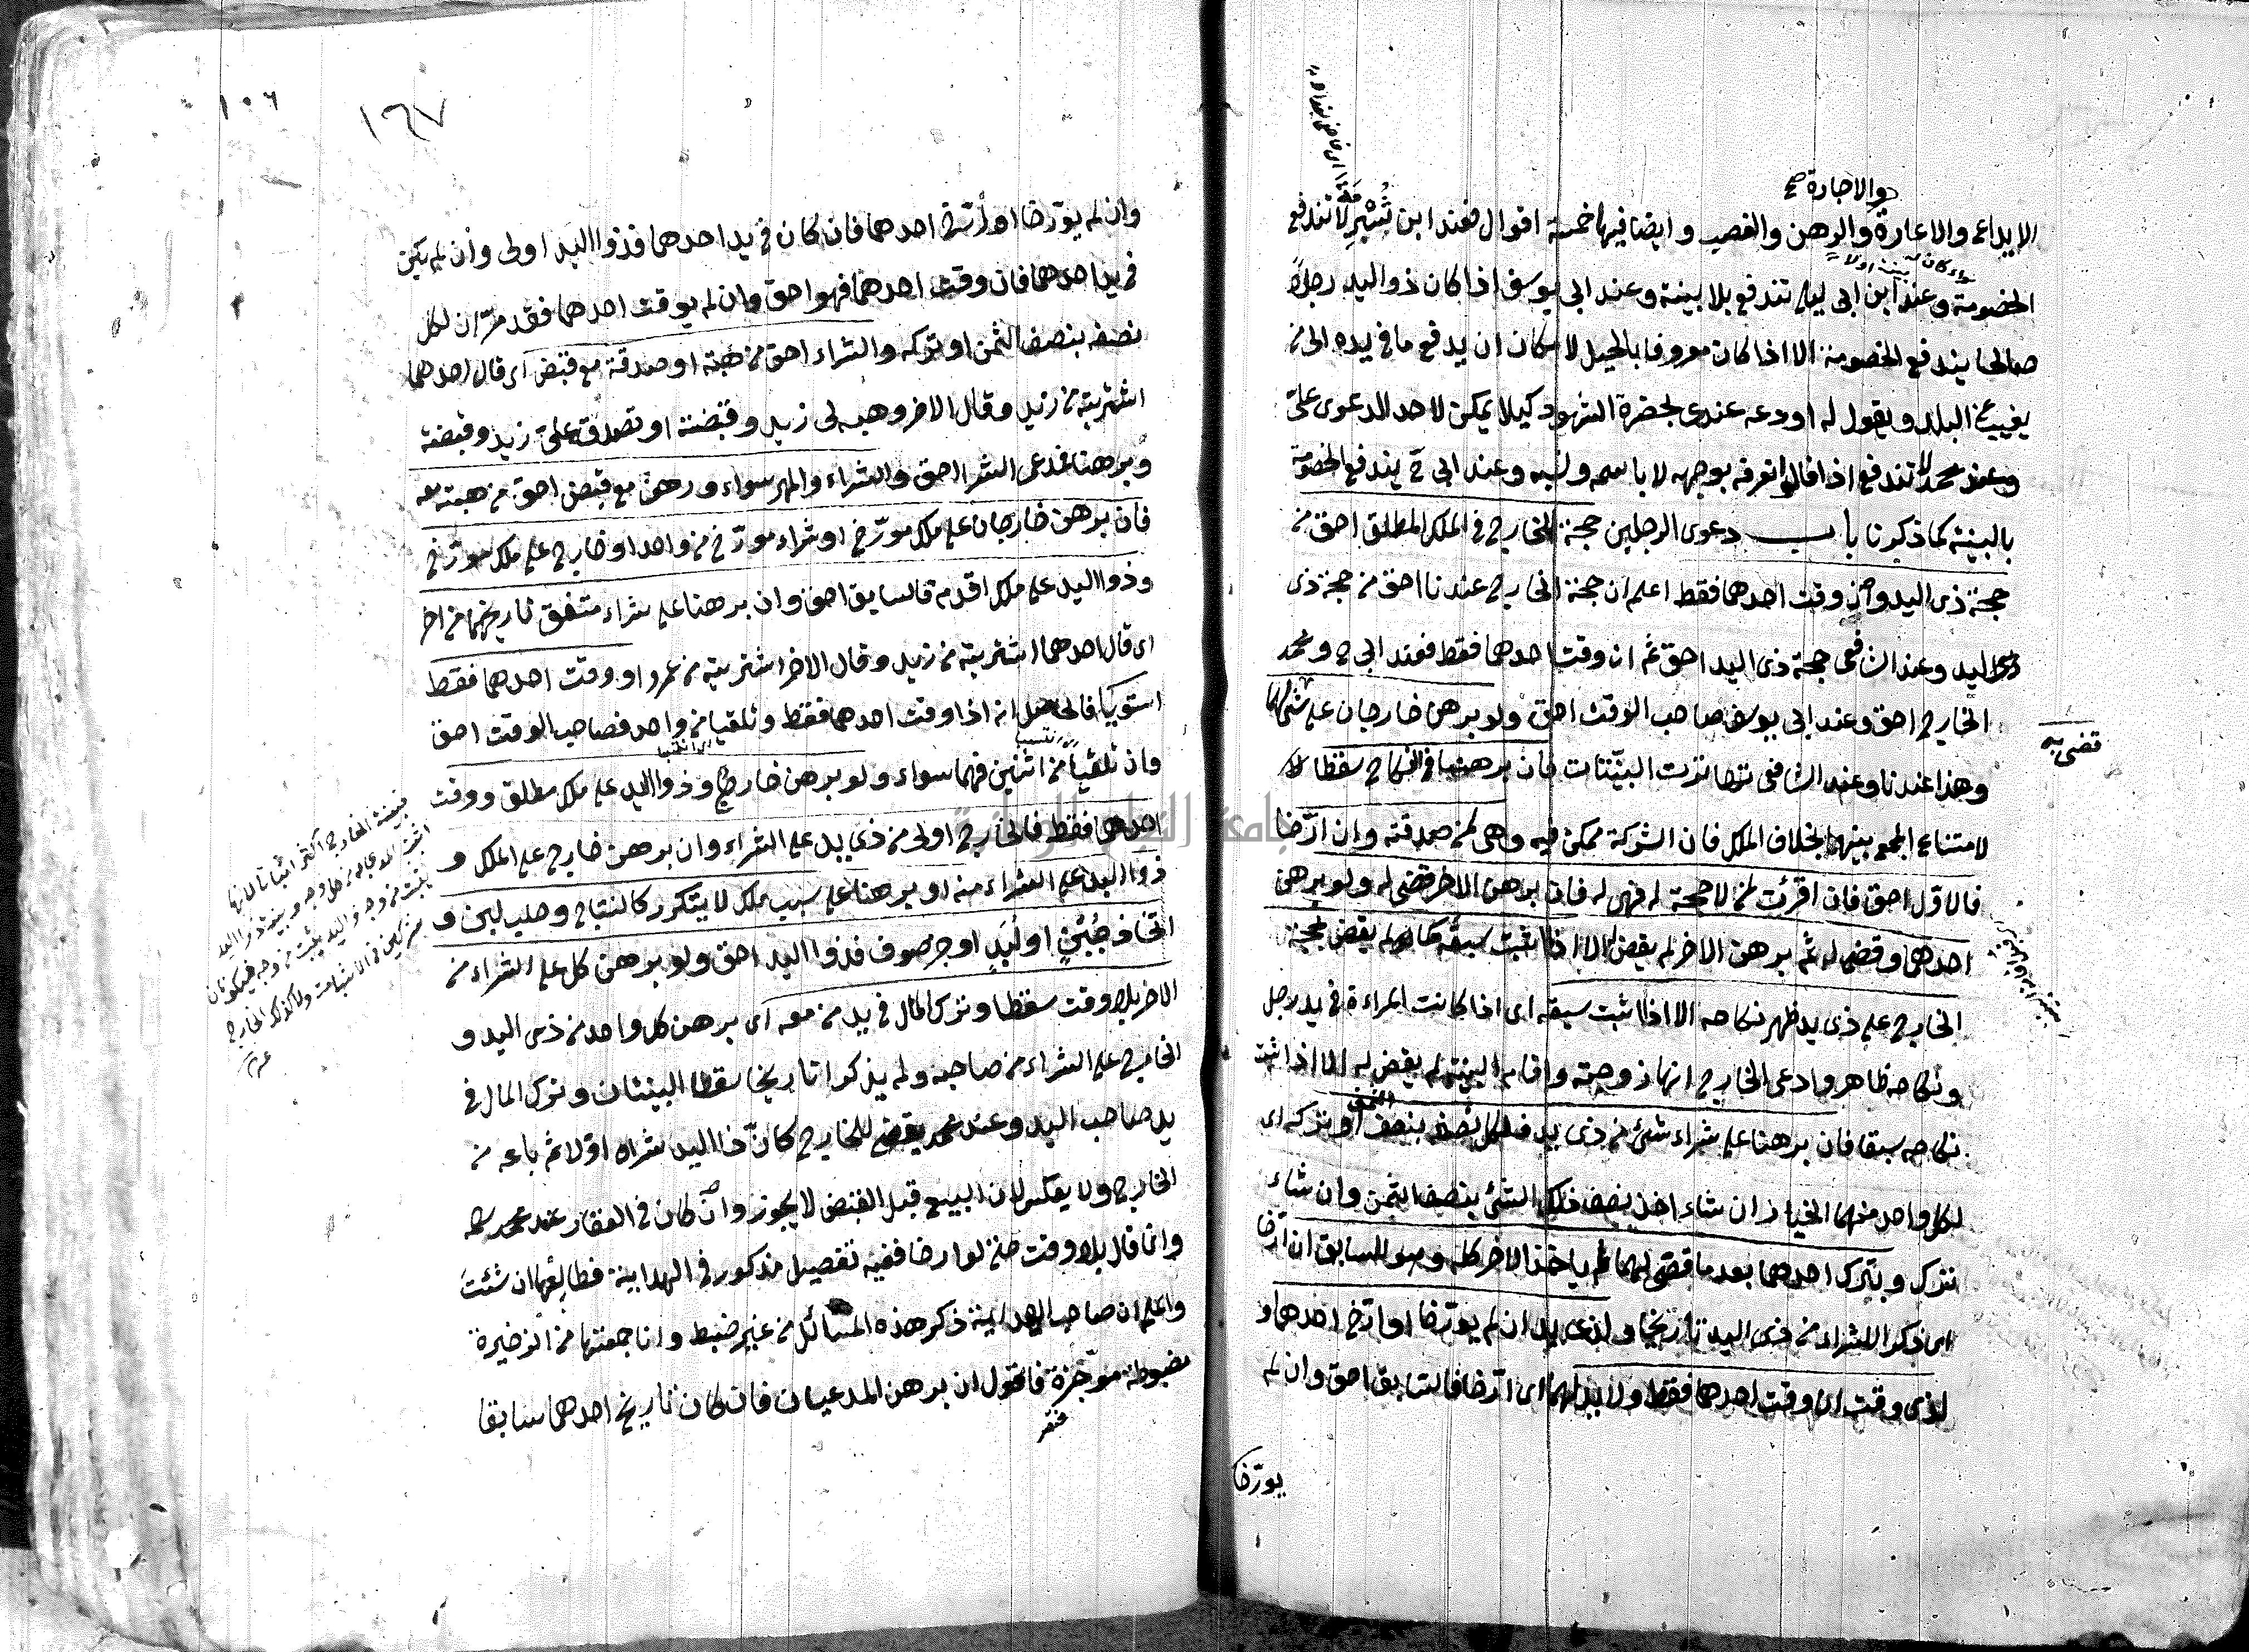 والاجارة صح
الايداع والاعارة والرهن والغصب وايضا فيها خمسة اقوال فعند ابن شبرمة لا تندفع
الخصومة وعند ابن ابى ليلى تندفع بلا بينة وعند ابى يوسف اذا كان ذو اليد رجلا
صالحا يندفع الخصومة الا اذا كان معروفا بالحيل لامكان ان يدفع ما فى يده الى من
يغيب عن البلد ويقول له اودعه عندى بحضرة الشهود كيلا يمكن لاحد الدعوى علىّ
وعند محمد لا تندفع اذا قالوا نعرفه بوجهه لا باسمه ونسبه وعند ابى ح يندفع الخصومة
بالبينة كما ذكرنا باب دعوى الرجلين حجة الخارج فى الملك المطلق احق من
حجة ذى اليد وان وقت احدهما فقط اعلم ان حجة الخارج عندنا احق من حجة ذى
ذى اليد وعند الشافعى حجة ذى اليد احق ثم ان وقت احدهما فقط فعند ابى ح ومحمد
الخارج احق وعند ابى يوسف صاحب الوقت احق ولو برهن خارجان على شئ لهما
قضى به
وهذا عندنا وعند الشافعى تهاترت البيّنتان فان برهنا فى النكاح سقطا
لامتناع الجمع بينهما بخلاف الملك فان الشركة ممكن فيه وهى لمن صدقته وان ارّخا
فالاوّل احق فان اقرّت لمن لا حجة له فهى له فان برهن الاخر قضى له ولو برهن
احدهما وقضى له ثم برهن الاخر لم يقض له الا اذا ثبت سبقه كما لم يقض بحجة
الخارج على ذى يد ظهر نكاحه الا اذا اثبت سبقه اى اذا كانت المراءة فى يد رجل
ونكاحه ظاهر وادعى الخارج انها زوجته واقام البينة لم يقض له الا اذا اثبت
نكاحه سبقا فان برهنا على شراء شئ من ذى يد فلكل نصفه بنصف الثمن او تركه اى
لكل واحد منهما الخيار ان شاء اخذ نصف ذلك الشئ بنصف الثمن وان شاء
ترك وبترك احدهما بعد ما قضى لهما لم ياخذ الاخر كله وهو للسابق ان ارّخا
اى ذكرا للشراء من ذى اليد تاريخا ولذى يد ان لم يورّخا او ارّخ احدهما و
لذى وقت ان وقت احدهما فقط ولا يد لهما اى ارّخا فالسابق احق وان لم
يورّخا
١٠٦
١٦٧
وان لم يورّخا او ارّخ احدهما فان كان فى يد احدهما فذوا اليد اولى وان لم يكن
فى يد احدهما فان وقت احدهما فهو احق وان لم يوقت احدهما فقد مرّ ان لكل
نصفه بنصف الثمن او تركه والشراء احق من هبة او صدقة مع قبض اى قال احدهما
اشتريته من زيد وقال الاخر وهب لى زيد وقبضته او تصدق علىّ زيد وقبضته
وبرهنا فمدعى الشراء احق والشراء والمهر سواء ورهن مع قبض احق من هبة معه
فان برهن خارجان على ملك مورّخ او شراء مورّخ من واحد او خارج على ملك مورّخ
وذوا اليد على ملك اقدم فالسابق احق وان برهنا على شراء متفق تاريخهما من اخر
اى قال احدهما اشتريته من زيد وقال الاخر اشتريته من عمرو او وقت احدهما فقط
استويا فالحاصل انه اذا وقت احدهما فقط وتلقيا من واحد فصاحب الوقت احق
وان تلقيا من اثنين فهما سواء ولو برهن خارج وذوا اليد على ملك مطلق ووقت
احدهما فقط فالخارج اولى من ذى يد على الشراء وان برهن خارج على الملك و
ذوا اليد على الشراء منه او برهنا على سبب ملك لا يتكرر كالنتاج وحلب لبن و
اتخاذ جُبُنٍّ او لُبَدٍ او جز صوف فذوا اليد احق ولو برهن كل على الشراء من
الاخر بلا وقت سقطا وترك المال فى يد من معه اى برهن كل واحد من ذى اليد و
الخارج على الشراء من صاحبه ولم يذكرا تاريخا سقطا البينتان وترك المال فى
يد صاحب اليد وعند محمد يقضى للخارج كانّ ذا اليد شراه اوّلا ثم باعه من
الخارج ولا يعكس لان البيع قبل القبض لا يجوز وان كان فى العقار عند محمد
وانما قال بلا وقت حتى لو ارخا ففيه تفصيل مذكور فى الهداية فطالعها ان شئتَ
واعلم ان صاحب الهداية ذكر هذه المسائل من غير ضبط وانا جمعتها من الذخيرة
مضبوطة موجزة فاقول ان برهن المدعيان فان كان تاريخ احدهما سابقا